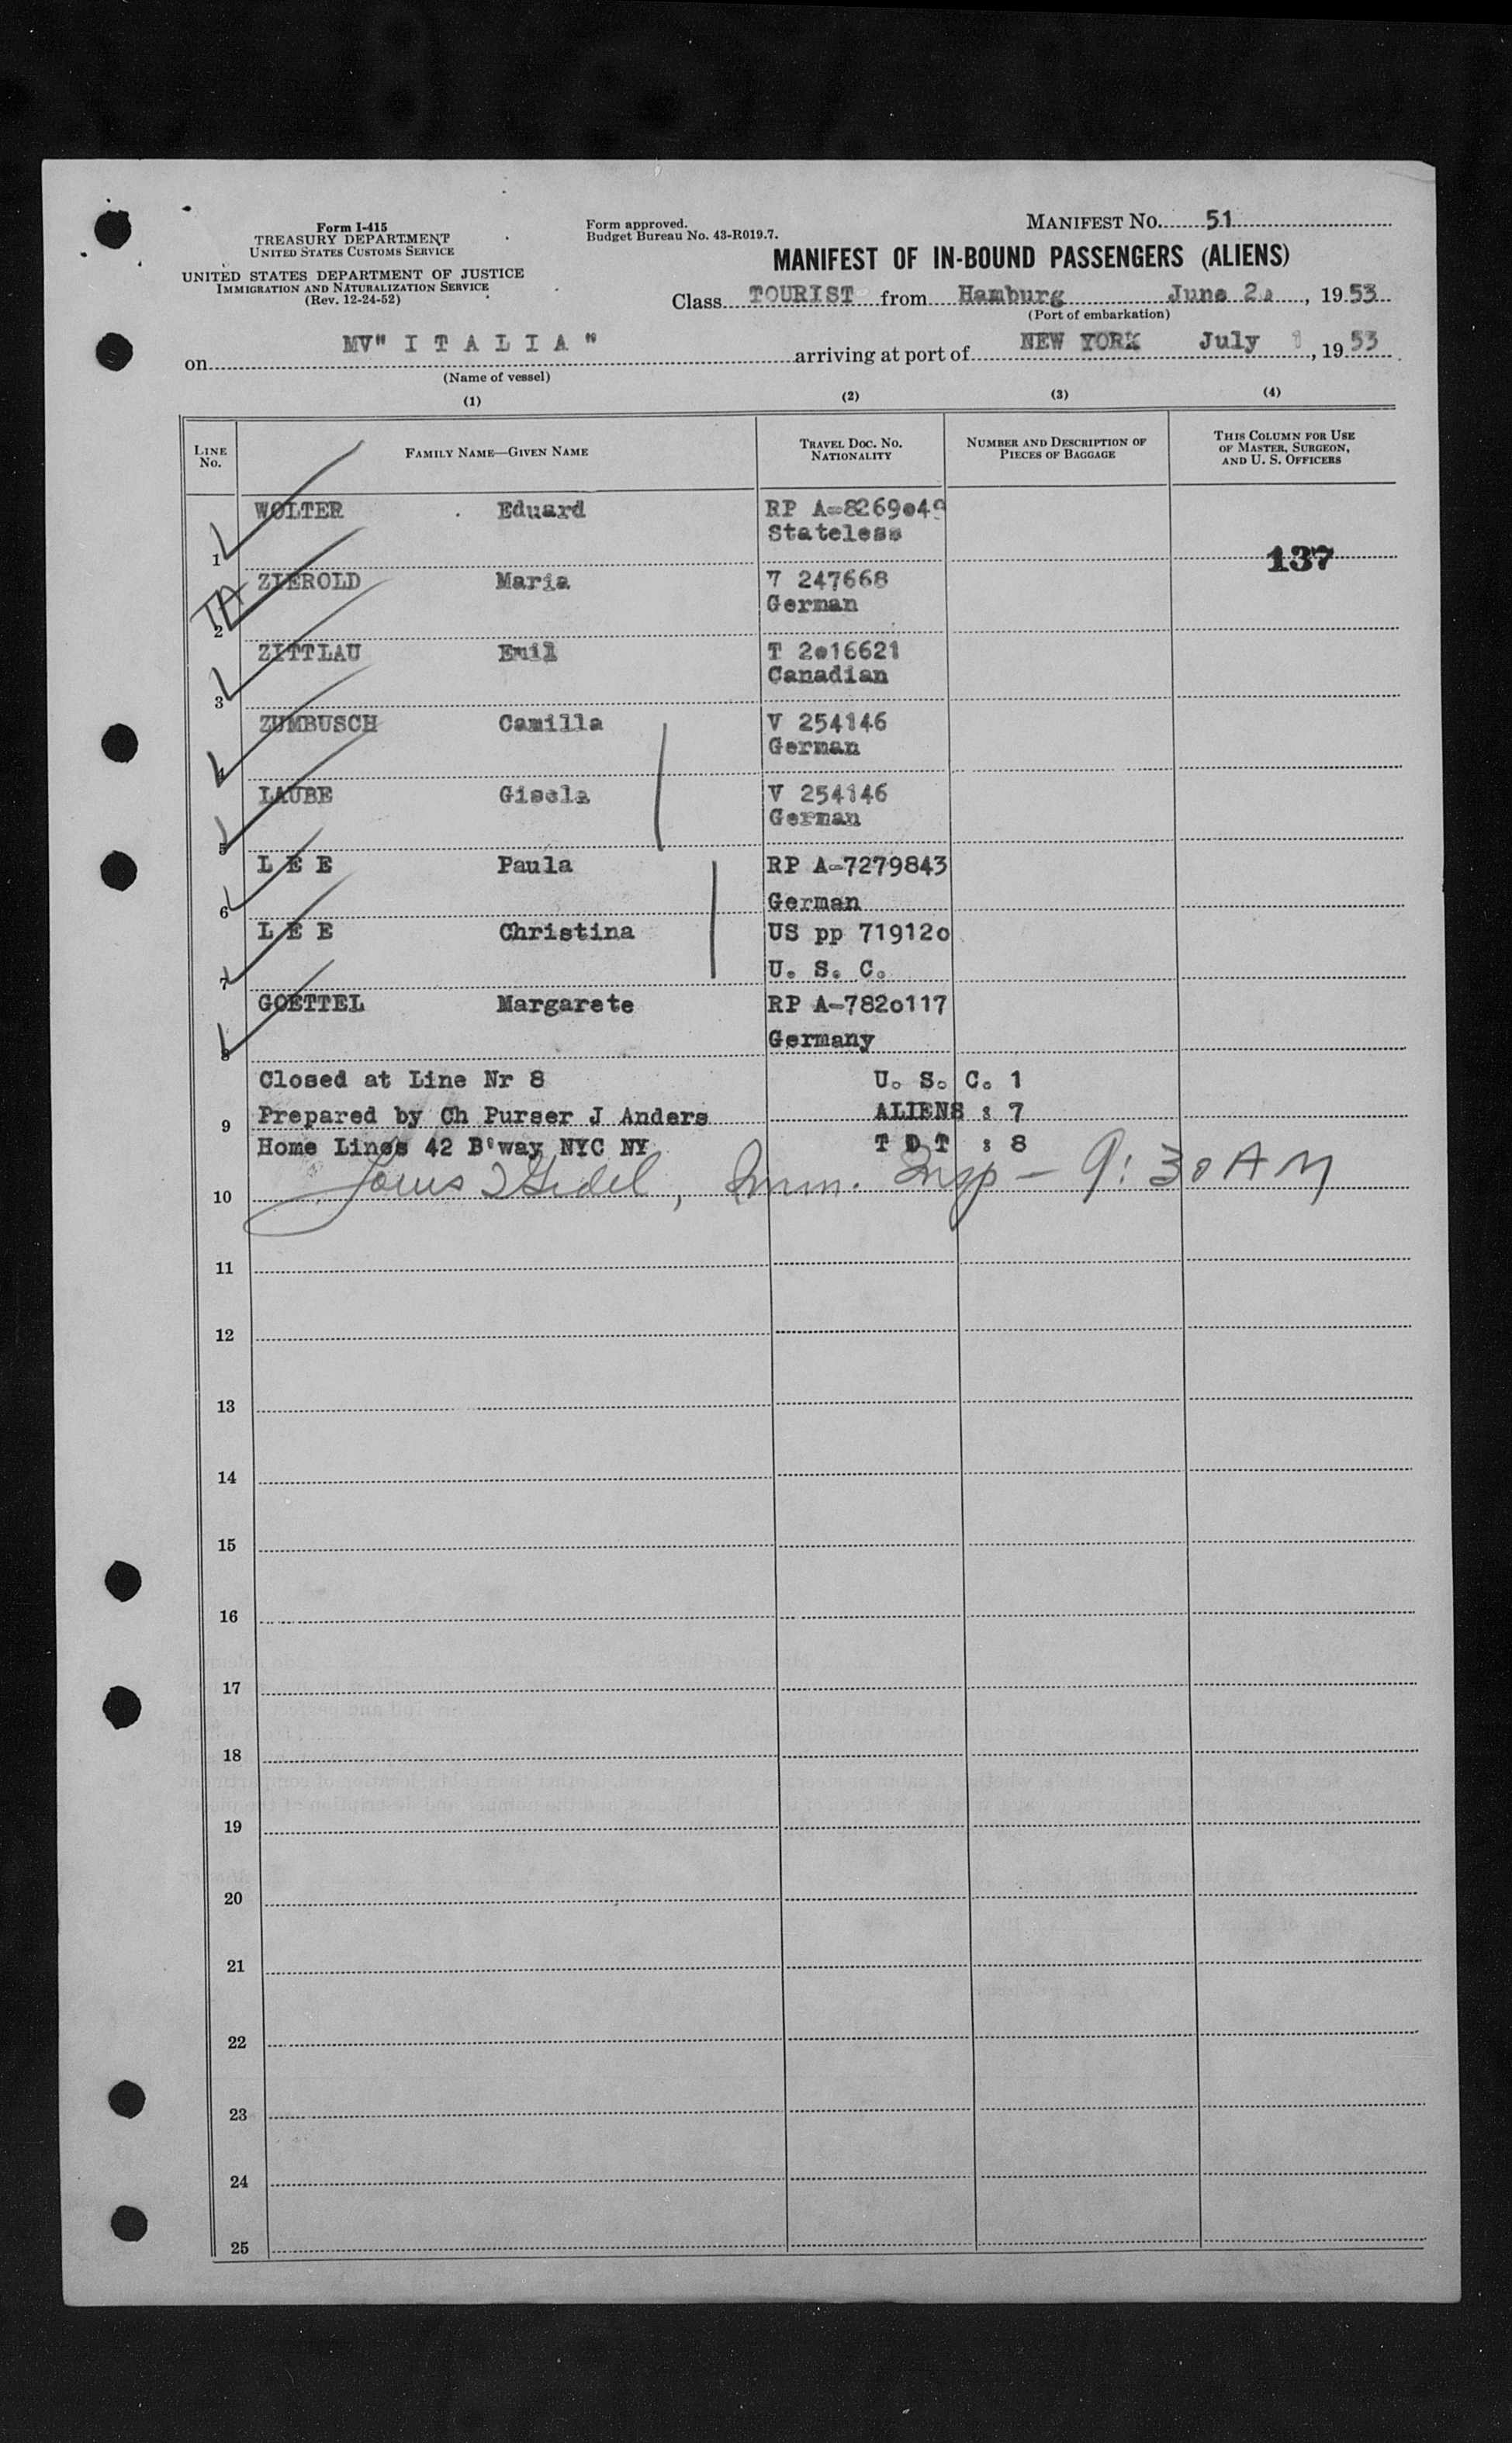 Form I-415
TREASURY DEPARTMENT
UNITED STATES CUSTOMS SERVICE
UNITED STATES DEPARTMENT OF JUSTICE
IMMIGRATION AND NATURALIZATION SERVICE
(Rev. 12-24-52)
Form approved.
Budget Bureau No. 43-R019.7.
MANIFEST NO. 51
MANIFEST OF IN-BOUND PASSENGERS (ALIENS)
Class TOURIST from Hamburg June , 1953
(Port of embarkation)
on MV" I T A L I A " arriving at port of NEW YORK July 1, 1953
(Name of vessel)
(1) (2) (3) (4)
LINE NO. FAMILY NAME—GIVEN NAME TRAVEL DOC. NO. NATIONALITY NUMBER AND DESCRIPTION OF PIECES OF BAGGAGE THIS COLUMN FOR USE OF MASTER, SURGEON, AND U. S. OFFICERS
1 WOLTER Eduard RP A-8269o49
Stateless
137
TA
2 ZIEROLD Maria 7 247668
German
3 ZITTLAU Emil T 2o16621
Canadian
4 ZUMBUSCH Camilla V 254146
German
5 LAUBE Gisela V 254146
German
6 L E E Paula RP A-7279843
German
7 L E E Christina US pp 71912o
U. S. C.
8 GOETTEL Margarete RP A-782o117
Germany
Closed at Line Nr 8 U. S. C. 1
9 Prepared by Ch Purser J Anders ALIENS : 7
Home Lines 42 B'way NYC NY T D T : 8
10 Imm. Insp - 9:30 AM
11
12
13
14
15
16
17
18
19
20
21
22
23
24
25